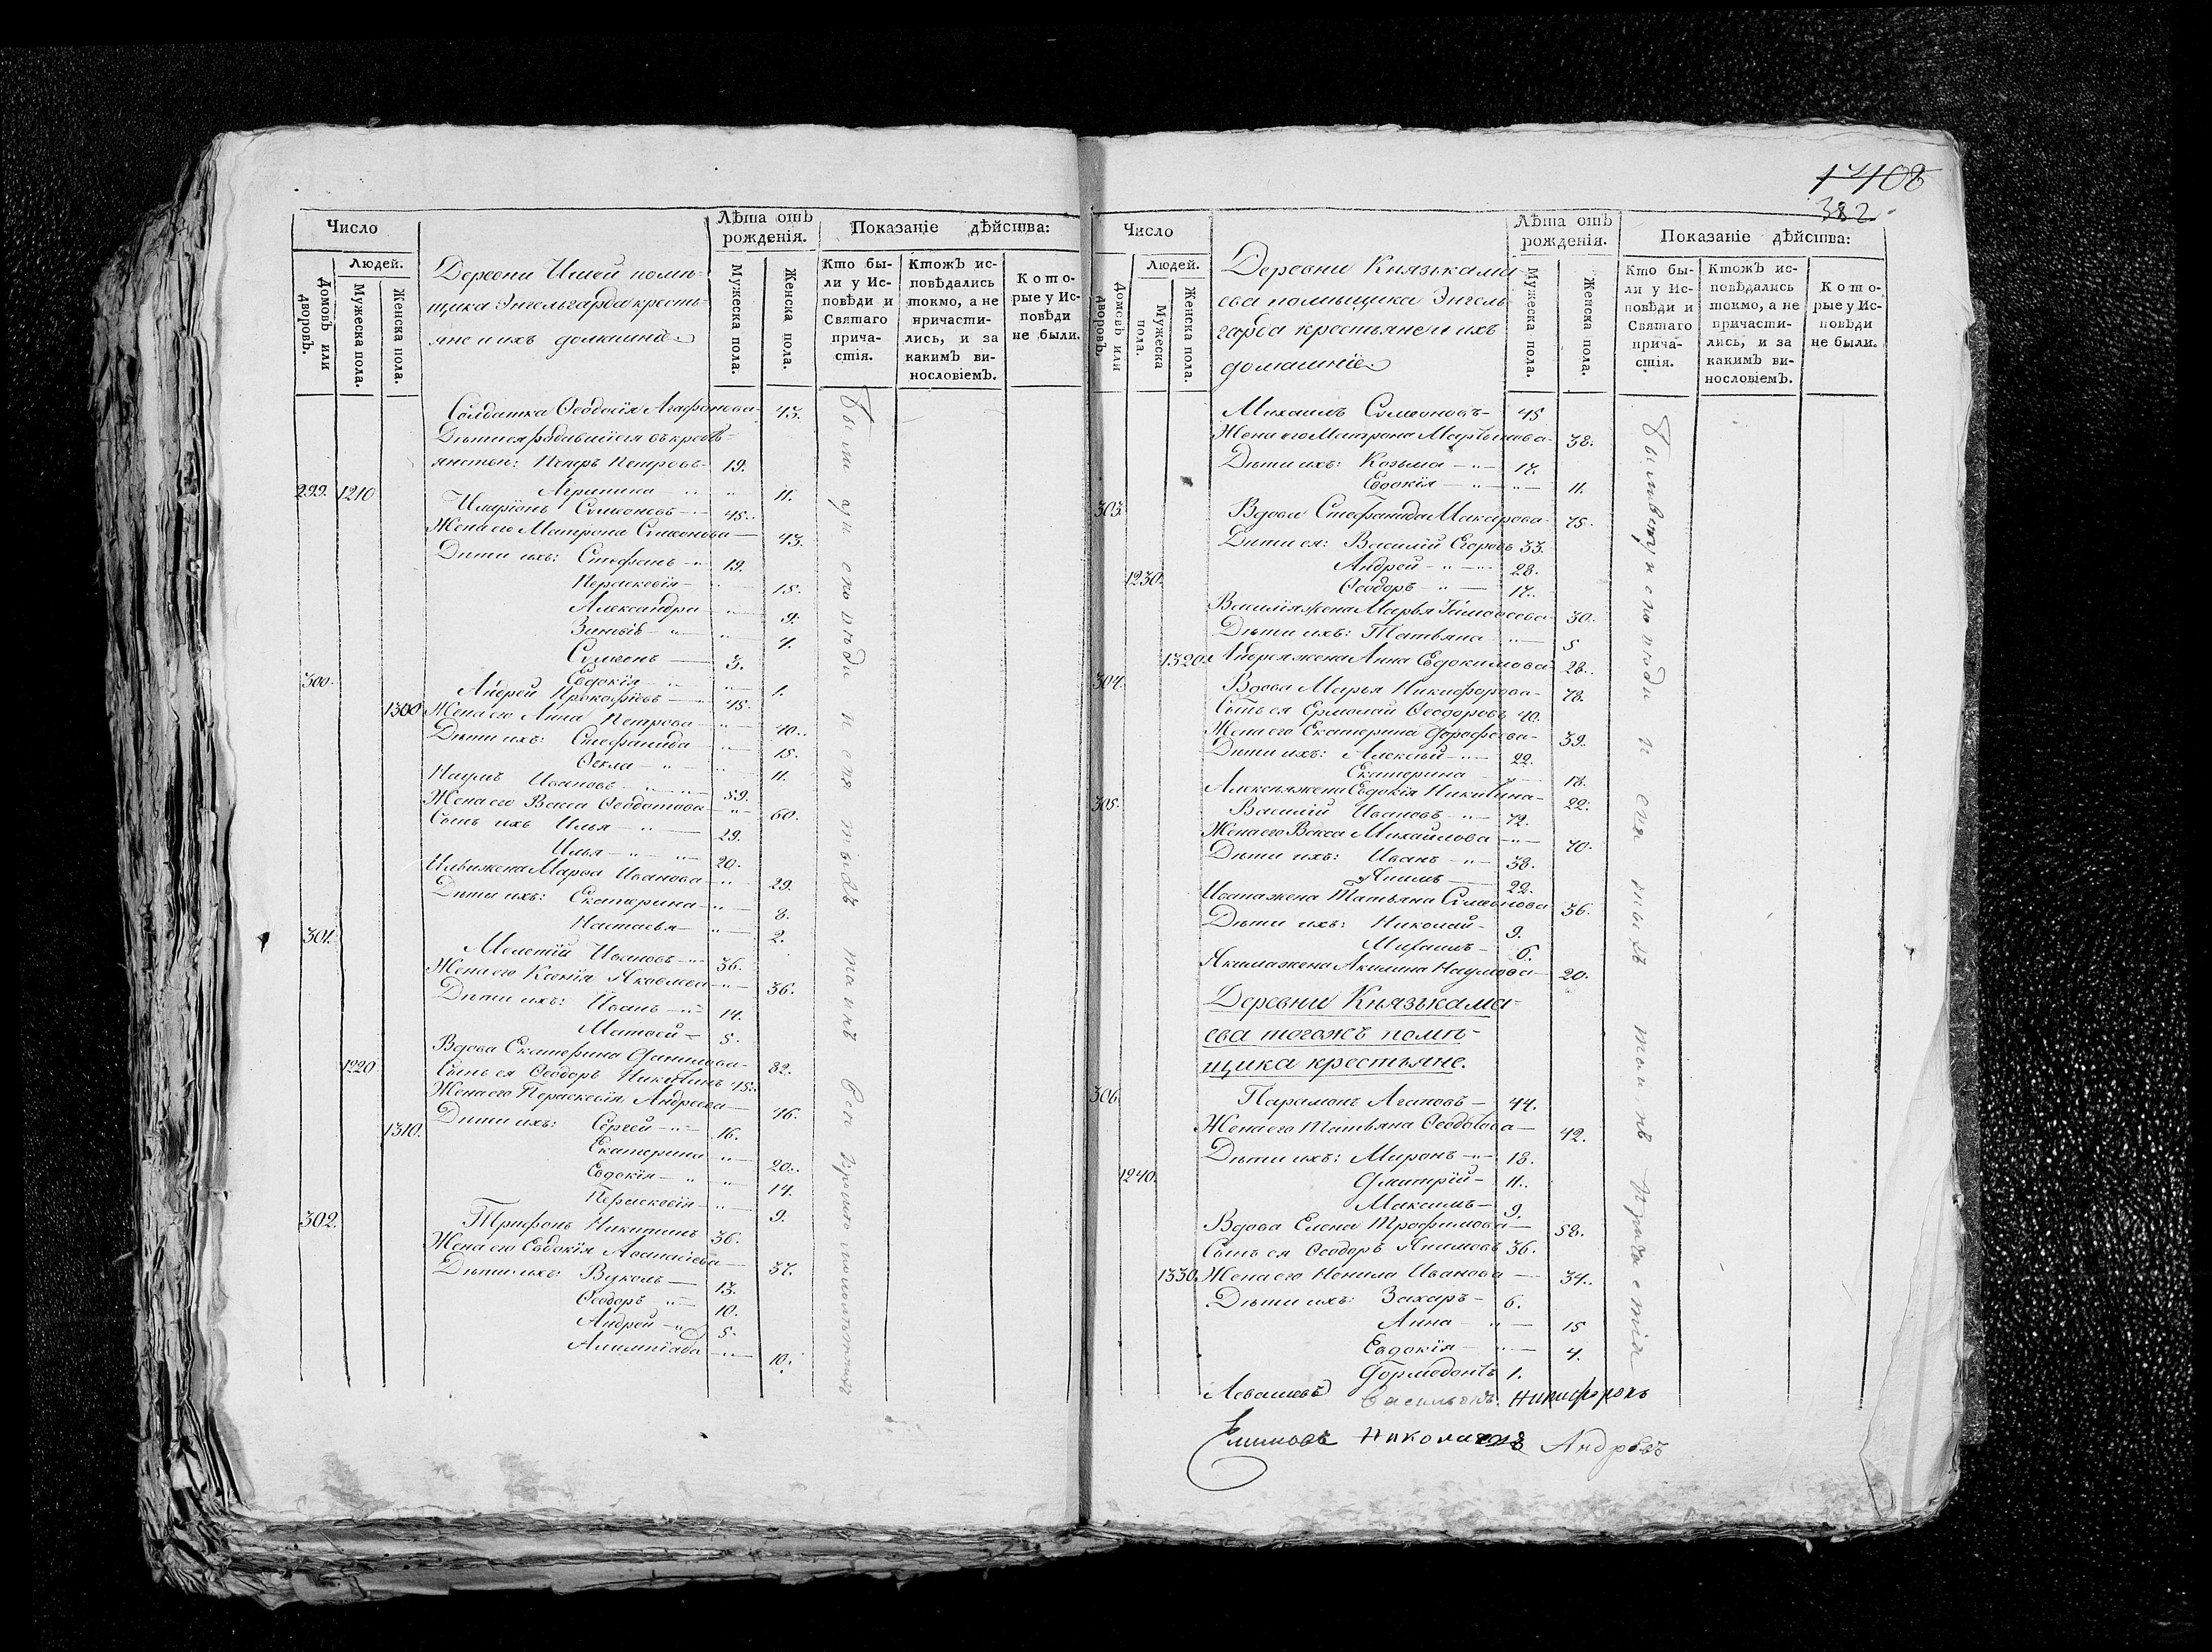 Число
Людей.
Домовъ или дворовъ.
Мужеска пола.
Женска пола.
Деревни Ишей помѣ-
щика Энгельгарда кресть-
яне и ихъ домашніе
Лѣта отъ
рожденія.
Мужеска пола.
Женска пола.
Показаніе дѣйства:
Кто бы-
ли у Ис-
повѣди и
Святаго
прича-
стія.
Ктожъ ис-
повѣдались
токмо, а не
причасти-
лись, и за
какимъ ви-
нословіемъ.
Кото-
рые у Ис-
повѣди
не были.
Солдатка Ѳеодосія Агафонова 43.
Дѣти ея родившіяся въ кресть-
янствѣ: Петръ Петровъ 19.
Агрипина 11.
299. 1210 Иларіонъ Сѵмеоновъ 45.
Жена его Матрона Сѵмеонова 43.
Дѣти ихъ: Стефанъ 19.
Параскевія 15.
Александра 9.
Зиновія 7.
Сѵмеонъ 3.
Евдокія 1.
300. Андрей Прокофіевъ 45.
1300 Жена его Анна Петрова 40.
Дѣти ихъ: Стефанида 15.
Ѳекла 11.
Наумъ Ивановъ 59.
Жена его Васса Ѳеодотова 60.
Сынъ ихъ Илья 29.
Илья 20.
Ильи жена Марѳа Иванова 29.
Дѣти ихъ: Екатерина 3.
Настасья 2.
301. Мелетій Ивановъ 36.
Жена его Ксенія Яковлева 36.
Дѣти ихъ: Иванъ 14.
Матвей 5.
Вдова Екатерина Данилова 82.
1220 Сынъ ея Ѳеодоръ Никитинъ 45.
Жена его Параскевія Андреева 46.
Дѣти ихъ: Сергей 16.
1310. Екатерина 20.
Евдокія 14.
Параскевія 9.
302. Трифонъ Никитинъ 36.
Жена его Евдокія Аѳанасіева 37.
Дѣти ихъ: Вуколъ 13.
Ѳеодоръ 10.
Андрей 5.
Алимпіада 10.
Были у исповѣди и свя
1408
382
Число
Людей.
Домовъ или дворовъ.
Мужеска пола.
Женска пола.
Деревни Князькама
ева помѣщика Энгель
гарда крестьяне и ихъ
домашніе
Лѣта отъ
рожденія.
Мужеска пола.
Женска пола.
Показаніе дѣйства:
Кто бы-
ли у Ис-
повѣди и
Святаго
прича-
стія.
Ктожъ ис-
повѣдались
токмо, а не
причасти-
лись, и за
какимъ ви-
нословіемъ.
Кото-
рые у Ис-
повѣди
не были.
Михаилъ Сѵмеоновъ 45
Жена его Матрона Мартынова 38.
Дѣти ихъ: Козьма 17.
Евдокія 11.
303. Вдова Стефанида Макарова 75.
Дѣти ея: Василій Егоровъ 33.
Андрей 28.
1230. Ѳеодоръ 17.
Василія жена Марья Тимоѳеева 30.
Дѣти ихъ: Татьяна 5
1320. Андрея жена Анна Евдокимова 28.
304. Вдова Марья Никифорова 78.
Сынъ ея Ермолай Ѳеодоровъ 40.
Жена его Екатерина Дорофеева 39.
Дѣти ихъ: Алексѣй 22.
Екатерина 18.
Алексѣя жена Евдокія Никитина 22.
305. Василій Ивановъ 72.
Жена его Васса Михайлова 70.
Дѣти ихъ: Иванъ 38.
Якимъ 22.
Ивана жена Татьяна Сѵмеонова 36.
Дѣти ихъ: Николай 9.
Михаилъ 6.
Якима жена Акилина Наумова 20.
Деревни Князькама-
ева тогожъ помѣ-
щика крестьяне.
306. Парамонъ Агаповъ 44.
Жена его Татьяна Ѳеодотова 42.
Дѣти ихъ: Миронъ 18.
1240. Дмитрій 11.
Максимъ 9.
Вдова Елена Трофимова 58.
Сынъ ея Ѳеодоръ Якимовъ 36.
1330. Жена его Ненила Иванова 34.
Дѣти ихъ: Захаръ 6.
Анна 15
Евдокія 4.
Дормедонтъ 1.
Были у исповѣди и свя таинъ причастія
Левашевъ Васильевъ Никифоровъ
Николаевъ Андрѣевъ